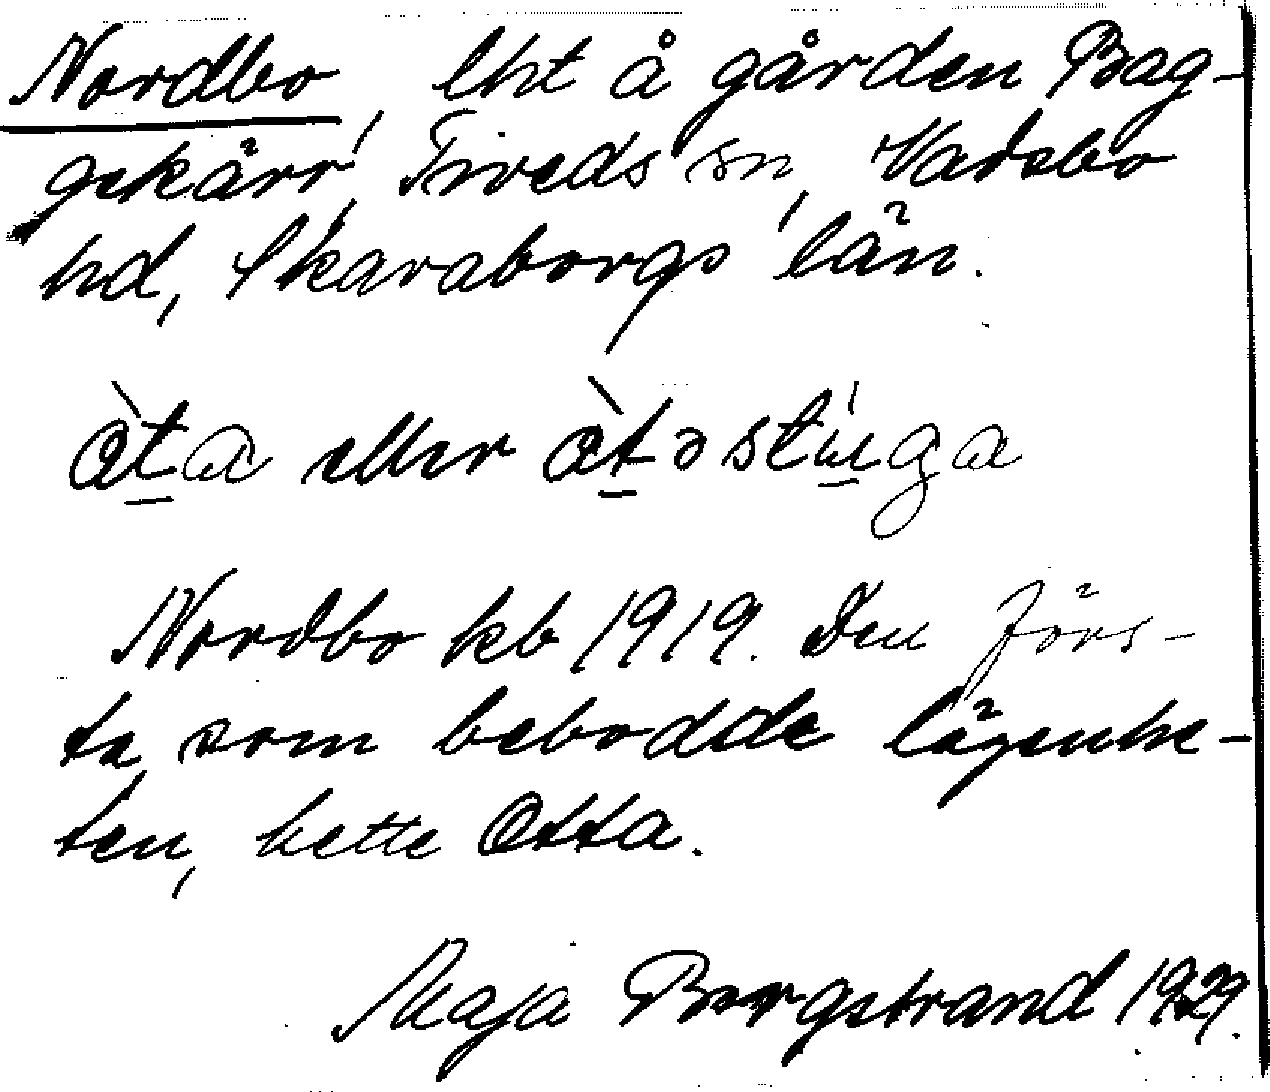 Nordbo, lht å gården Bag-
gekärr, Tiveds sn, Vadsbo
hd, Skaraborgs län.
òta eller òtəstúga
Nordbo kb 1919. Den förs-
ta, som bebodde lägenhe-
ten, hette Otta.
Maja Bergstrand 1929.